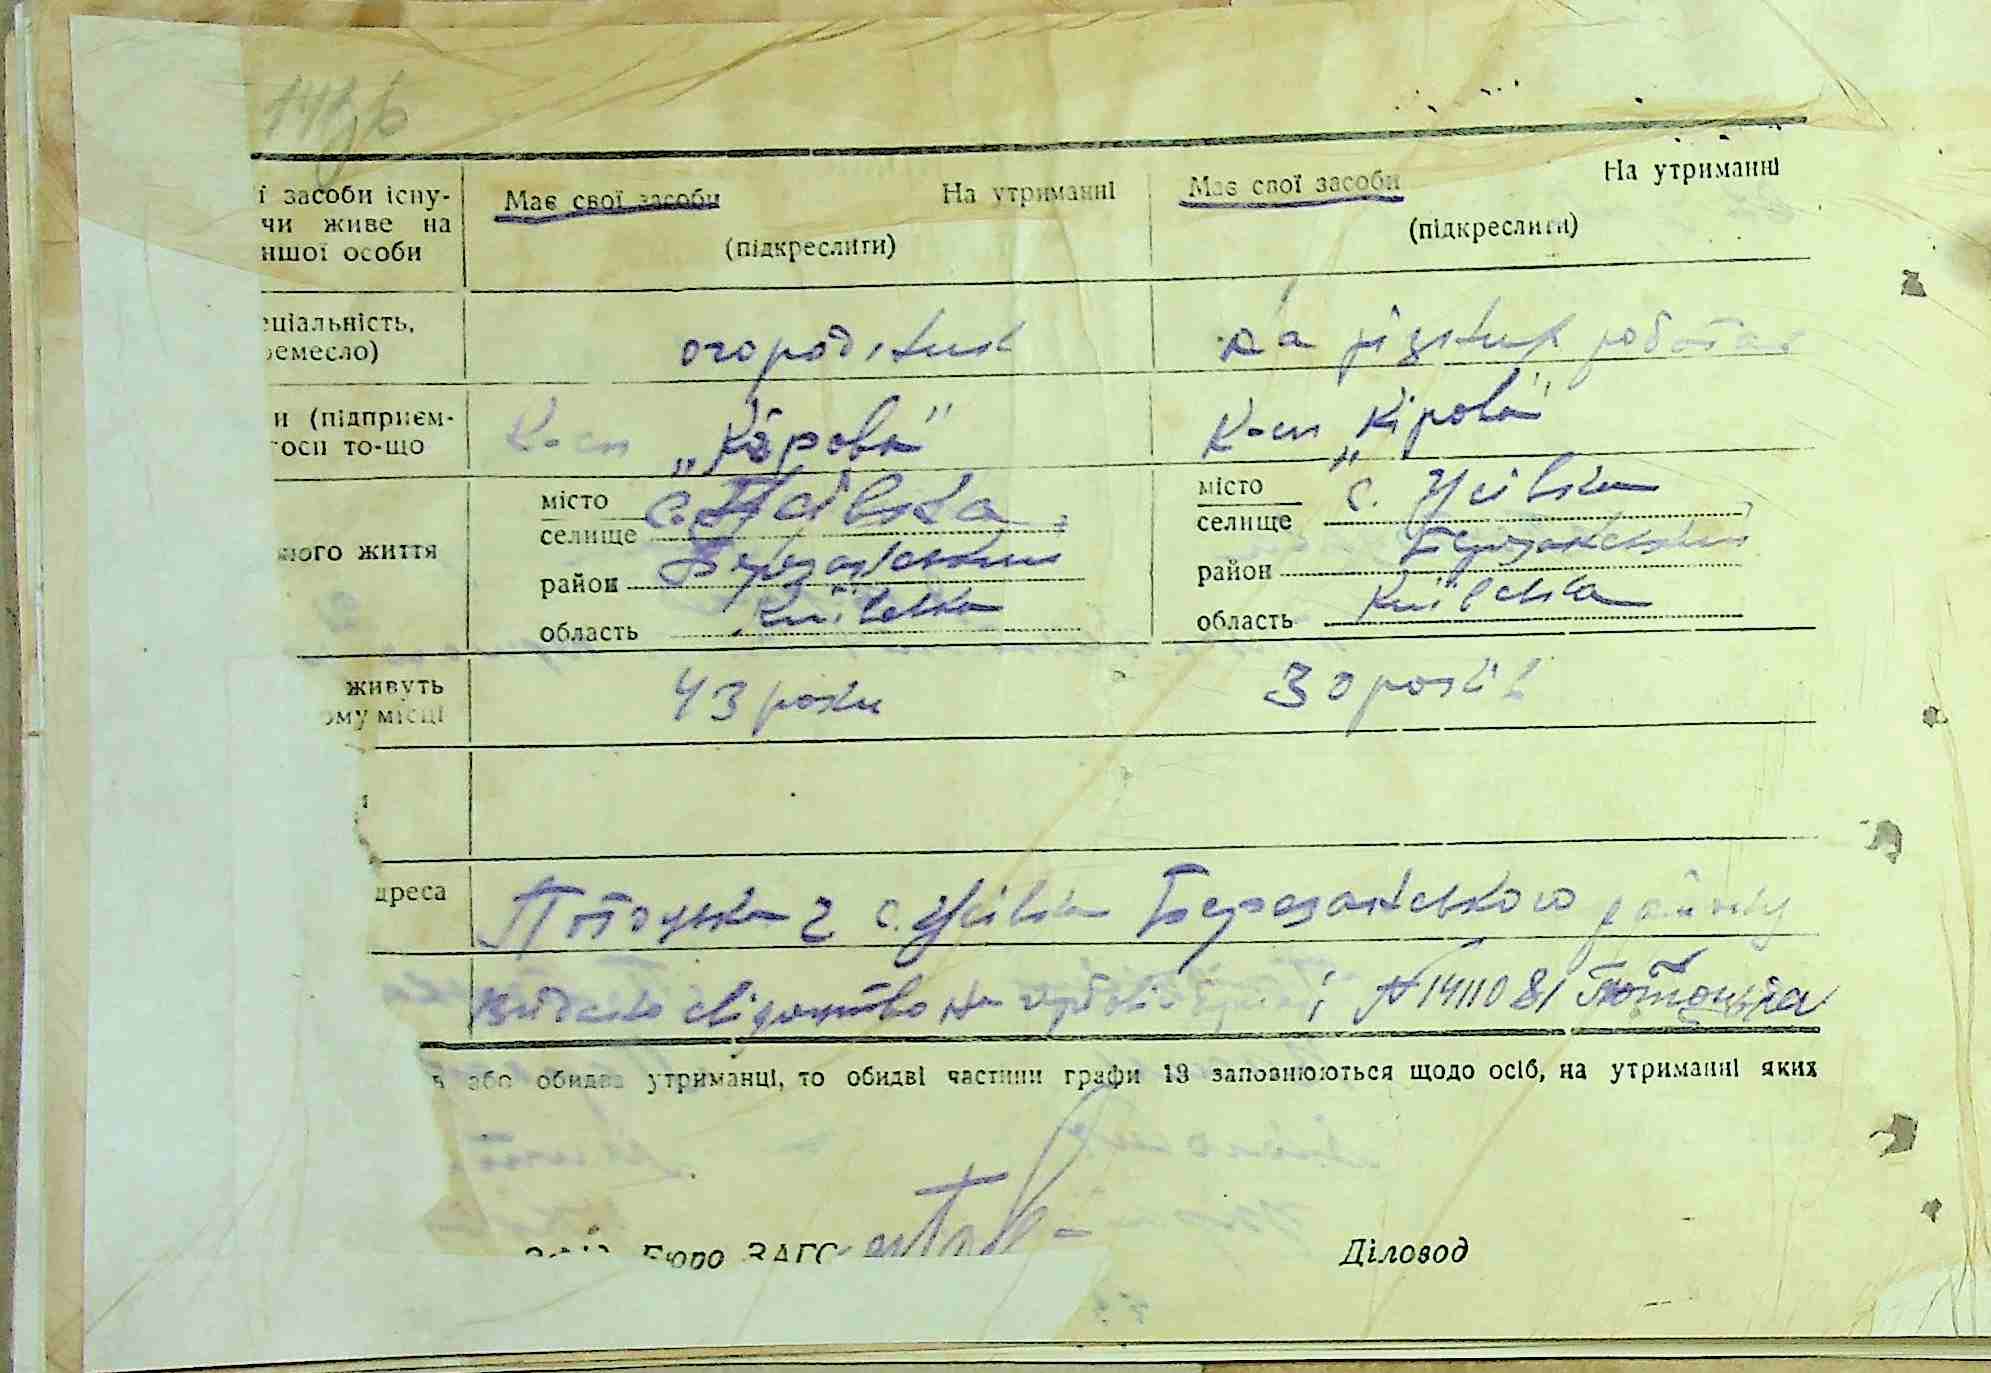 і засоби існу-
чи живе на
ншої особи
Має свої засоби На утриманні
(підкреслити)
Має свої засоби На утриманні
(підкреслити)
еціальність,
ремесло)
огородник
на різних роботах
и (підприєм-
госп то-що
К-сп „Кірова"
К-сп „Кірова"
ного життя
місто
селище
с. Усівка
район Березанський
область Київська
місто
селище
с. Усівка
район Березанський
область Київська
живуть
ому місці
43 роки
30 років
дреса
с. Усівка Березанського району
видано свідоцтво на
№ 141108
або обидва утриманці, то обидві частини графи 13 заповнюються щодо осіб, на утриманні яких
Бюро ЗАГС
Діловод